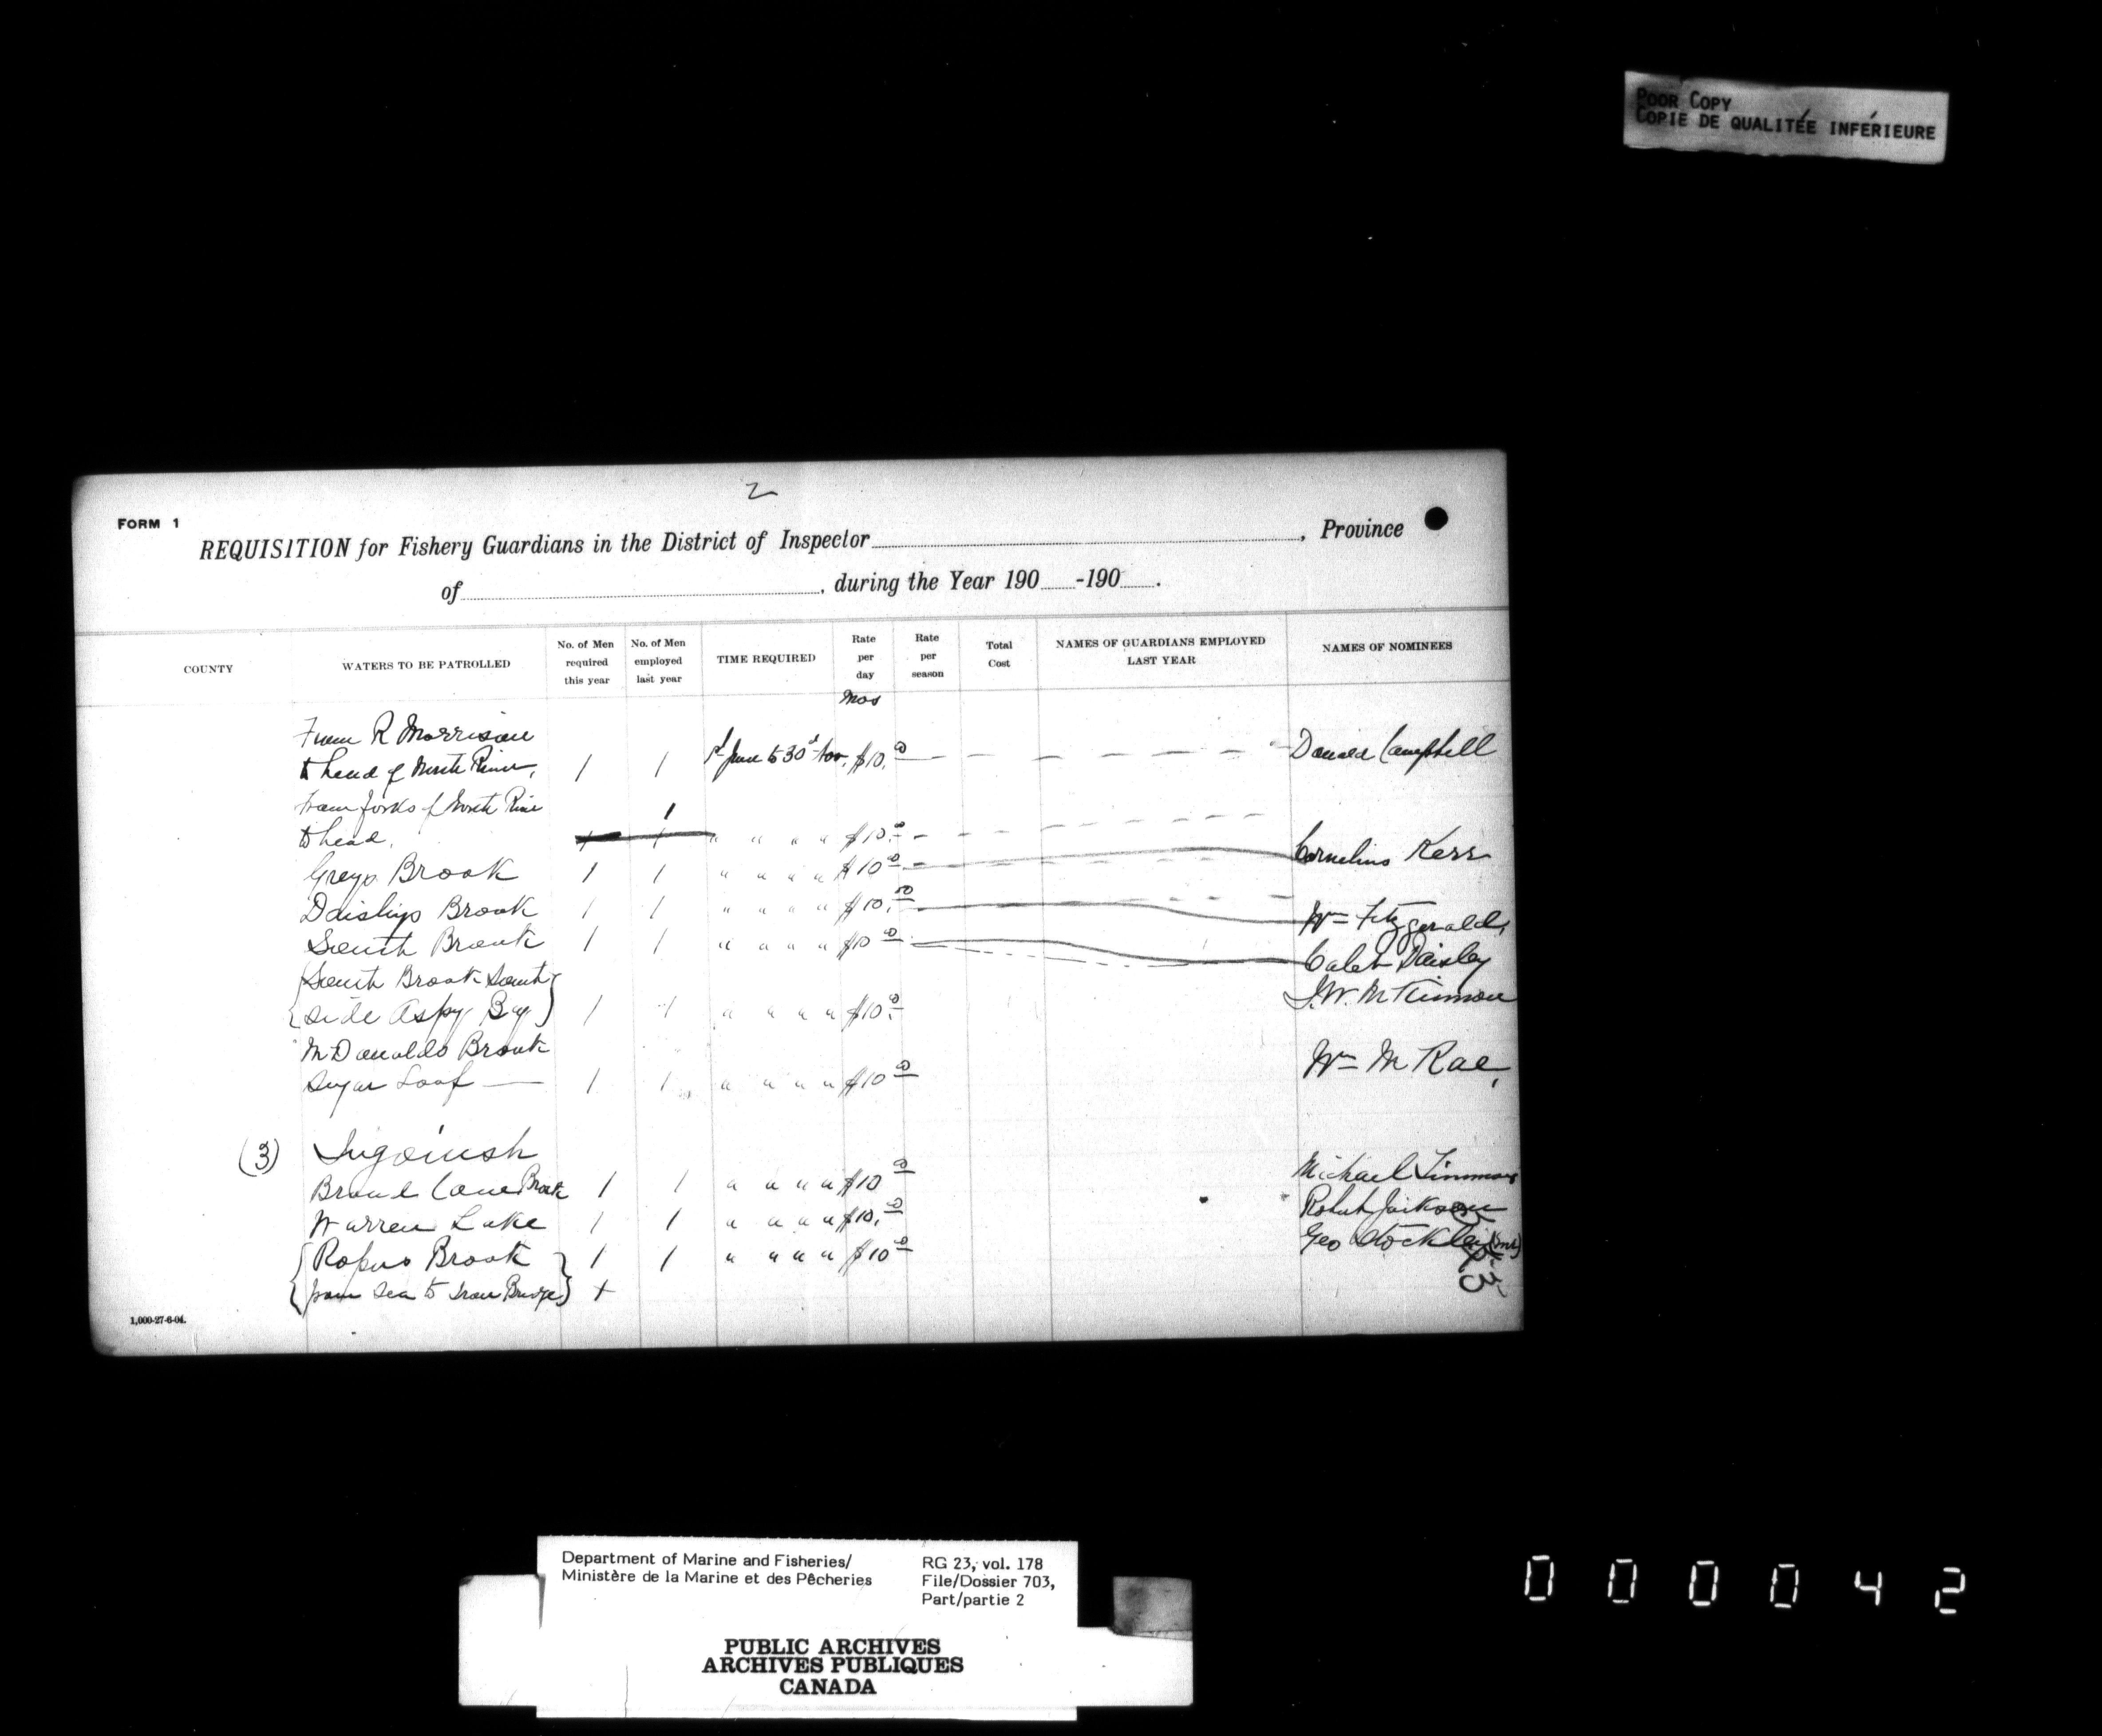 POOR COPY
COPIE DE QUALITÉE INFÉRIEURE
2
FORM 1
REQUISITION for Fishery Guardians in the District of Inspector , Province
of , during the Year 190 -190 .
COUNTY WATERS TO BE PATROLLED No. of Men required this year No. of Men employed last year TIME REQUIRED Rate per day Rate per season Total Cost NAMES OF GUARDIANS EMPLOYED LAST YEAR NAMES OF NOMINEES
Mos
From R Morrison
to head of North River, 1 1 1st June to 30th Nov. $10.00 Donald Campbell
From forks of North River 1
to head. 1 1 " " " " $10.00
Greys Brook 1 1 " " " " $10 00 Cornelius Kerr
Daisleys Brook 1 1 " " " " $10.00 Wm Fitzgerald,
South Brook 1 1 " " " " $10 00 Caleb Daisley
South Brook South J.W. McKinnon
side Aspy Bay 1 1 " " " " $10.00
McDonalds Brook
Sugar Loaf 1 1 " " " " $10 00 Wm McRae,
(3) Ingonish
Broad Cove Brook 1 1 " " " " $10 00 Michael Timmons
Warren Lake 1 1 " " " " $10.00 Robert Jackson
Ropers Brook 1 1 " " " " $10 00 Geo Stockley
from Sea to Iron Bridge +
1,000-27-6-04.
Department of Marine and Fisheries/
Ministère de la Marine et des Pêcheries
RG 23, vol. 178
File/Dossier 703,
Part/partie 2
PUBLIC ARCHIVES
ARCHIVES PUBLIQUES
CANADA
000042